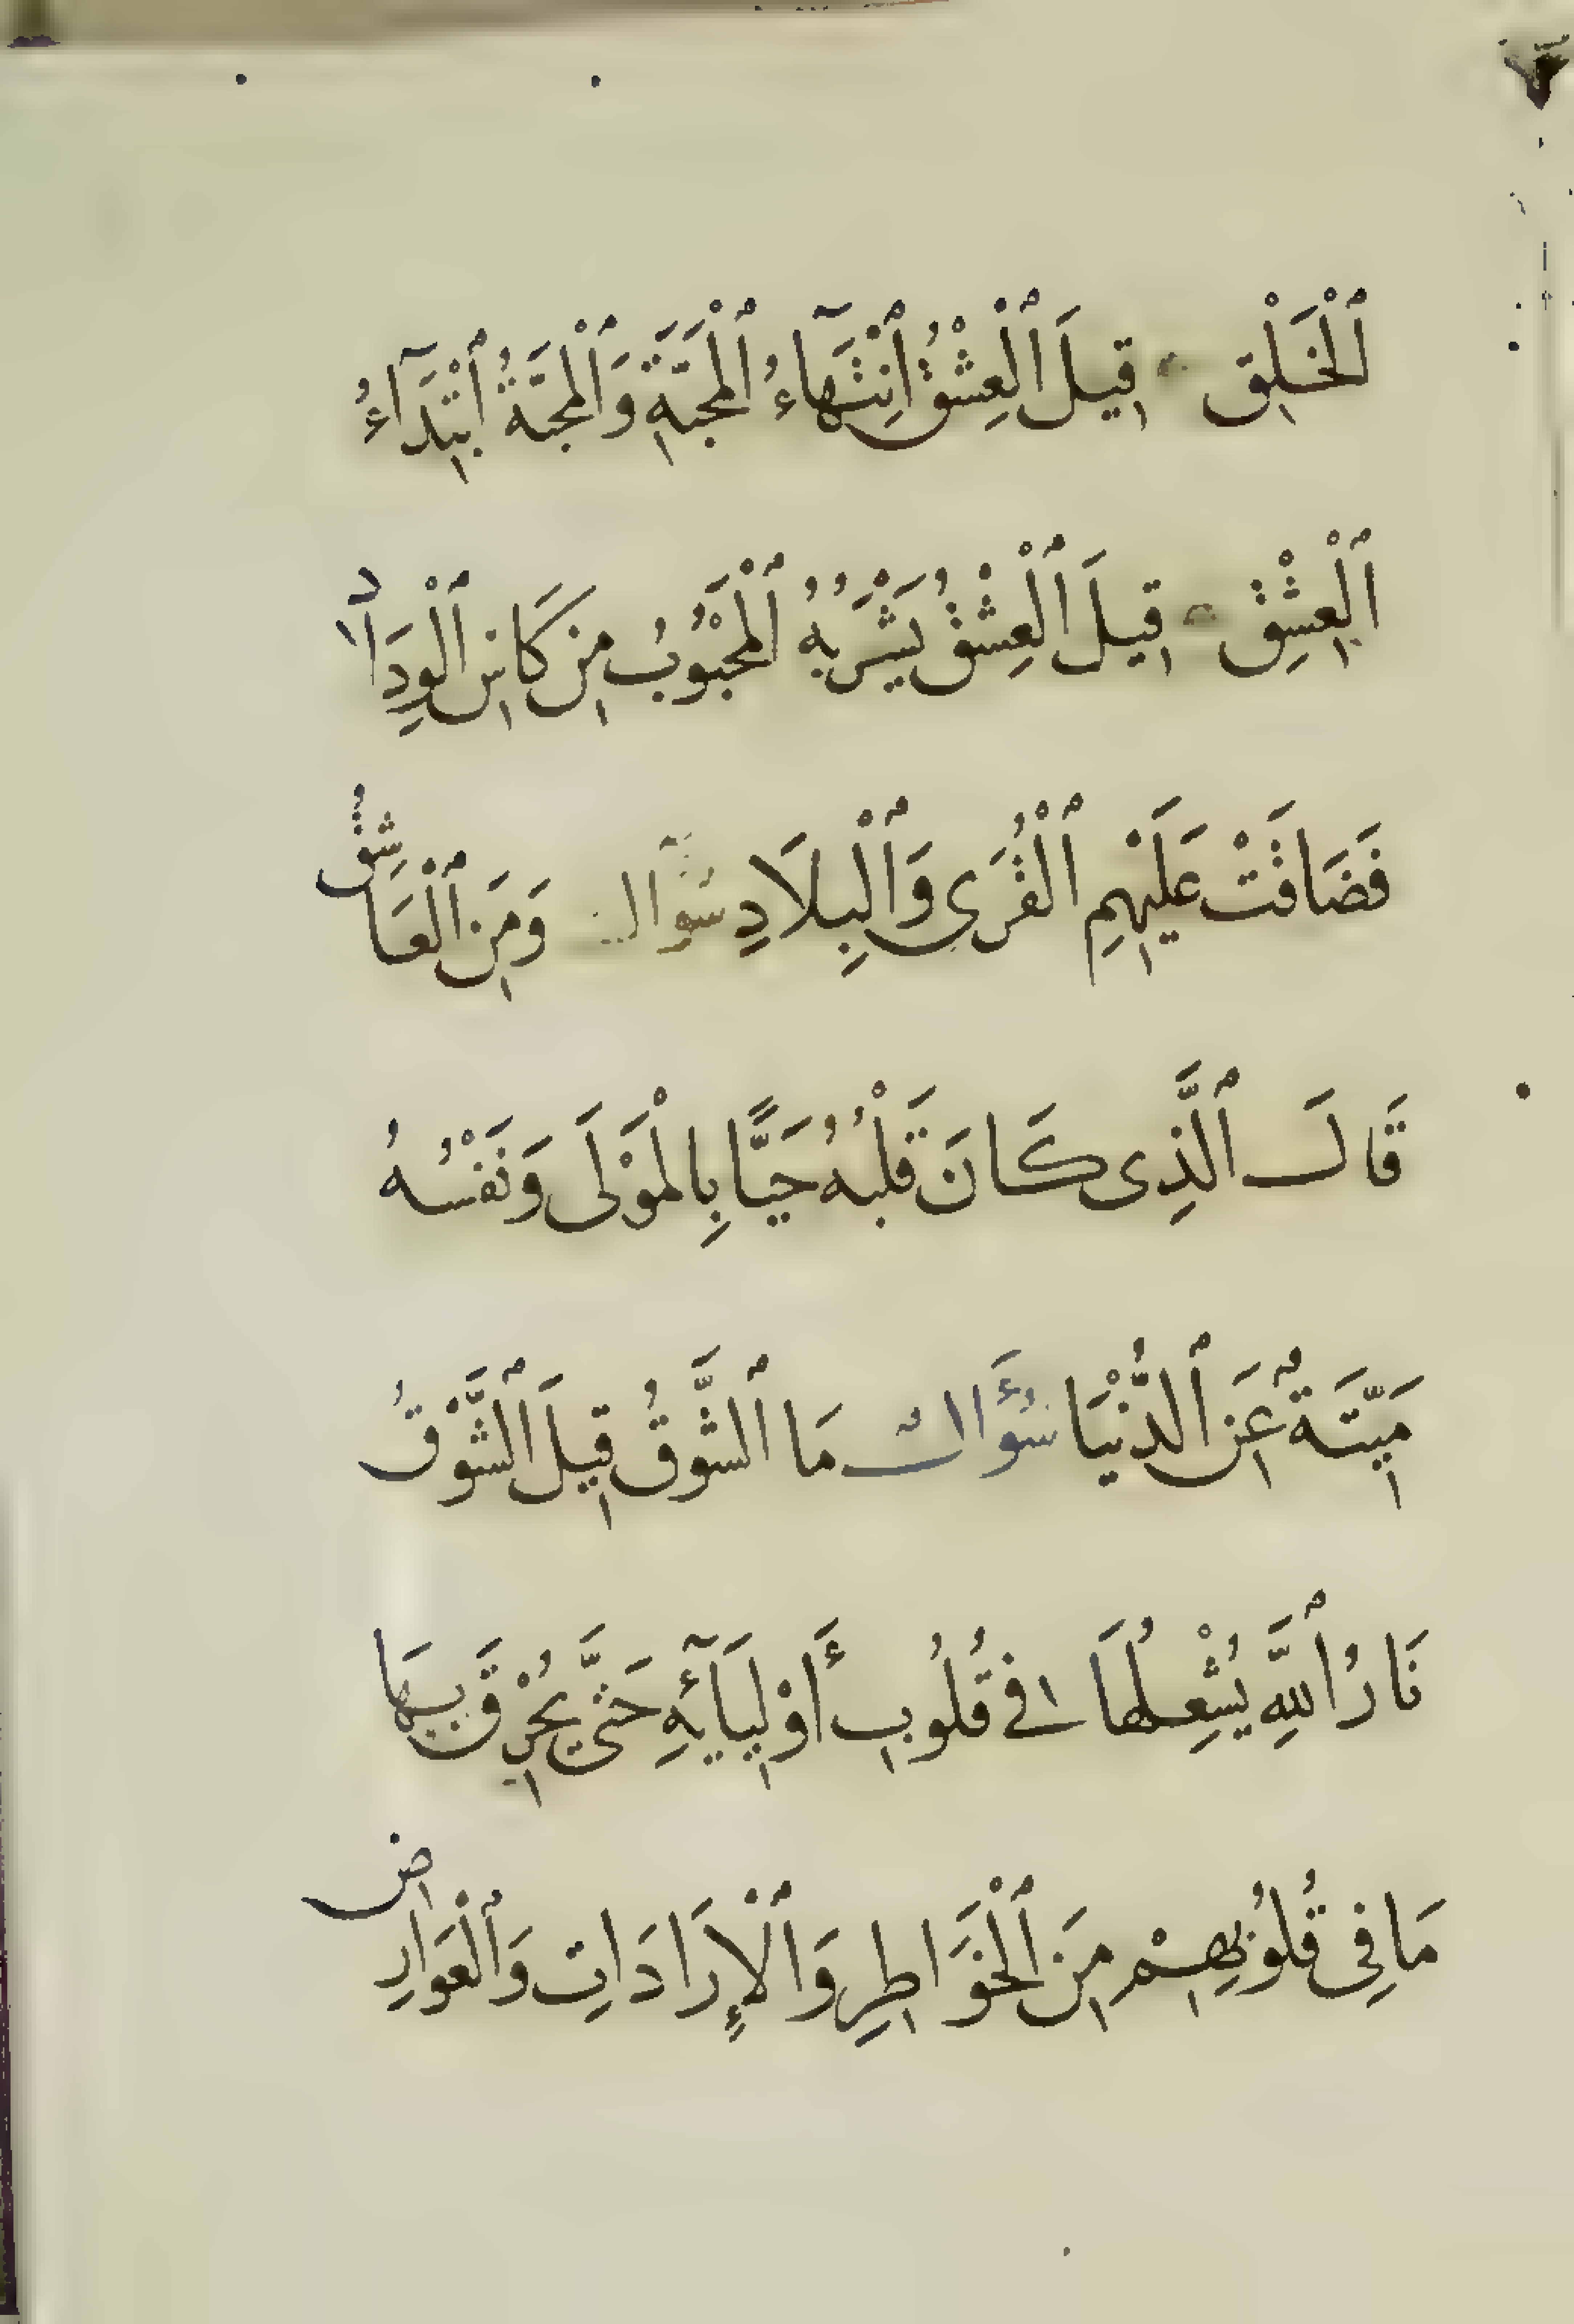 ٱلْخَلْقِ قِيلَ ٱلْعِشْقُ ٱنْتِهَآءُ ٱلْمَحَبَّةِ وَٱلْمَحَبَّةُ ٱبْتِدَآءُ
ٱلْعِشْقِ قِيلَ ٱلْعِشْقُ يَشْرَبُهُ ٱلْمَحْبُوبُ مِن كَاسِ ٱلْوِدَادِ
فَضَاقَتْ عَلَيْهِمِ ٱلْقُرَى وَٱلْبِلَادِ سُوَآل وَمَنِ ٱلْعَاشِقُ
قَالَ ٱلَّذِى كَانَ قَلْبُهُ حَيًّا بِالْمَوْلَى وَنَفْسُهُ
مَيِّتَةٌ عَنِ ٱلدُّنْيَا سُؤَال مَا ٱلشَّوْقُ قِيلَ ٱلشَّوْقُ
نَارُ ٱللَّهِ يُشْعِلُهَا فِى قُلُوبِ أَوْلِيَآئِهِ حَتَّى يُحْرِقَ بِهَا
مَا فِى قُلُوبِهِمْ مِنَ ٱلْخَوَاطِرِ وَٱلْإِرَادَاتِ وَٱلْعَوَارِضِ